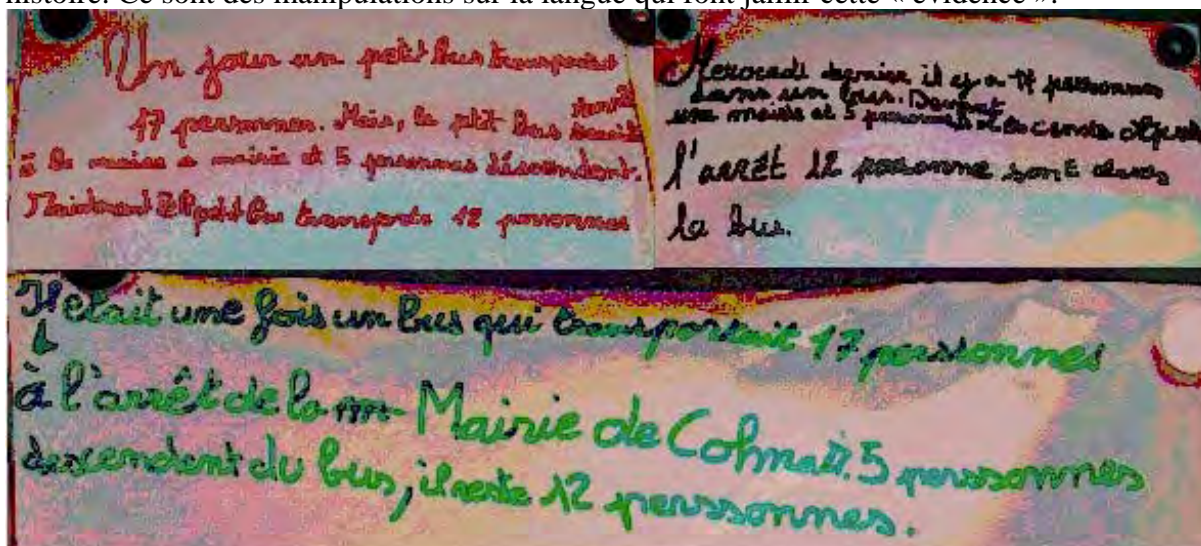 histoire. Ce sont des manipulations sur la langue qui font jaillir cette « évidence ».
Un jour un petit bus transportait
17 personnes. Mais, le ptit bus
à la mairie et 5 personnes déscendent.
Maintenant le petit bus transporte 12 personnes
Mercredi dernier, il y a 17 personnes
dans un bus. Devant
une mairie et 5 personnes
l'arrêt 12 personne sont dans
la bus.
Il était une fois un bus qui transportait 17 personnes
à l'arrêt de la m Mairie de Colmar. 5 perssonnes
descendent du bus, il reste 12 perssonnes.